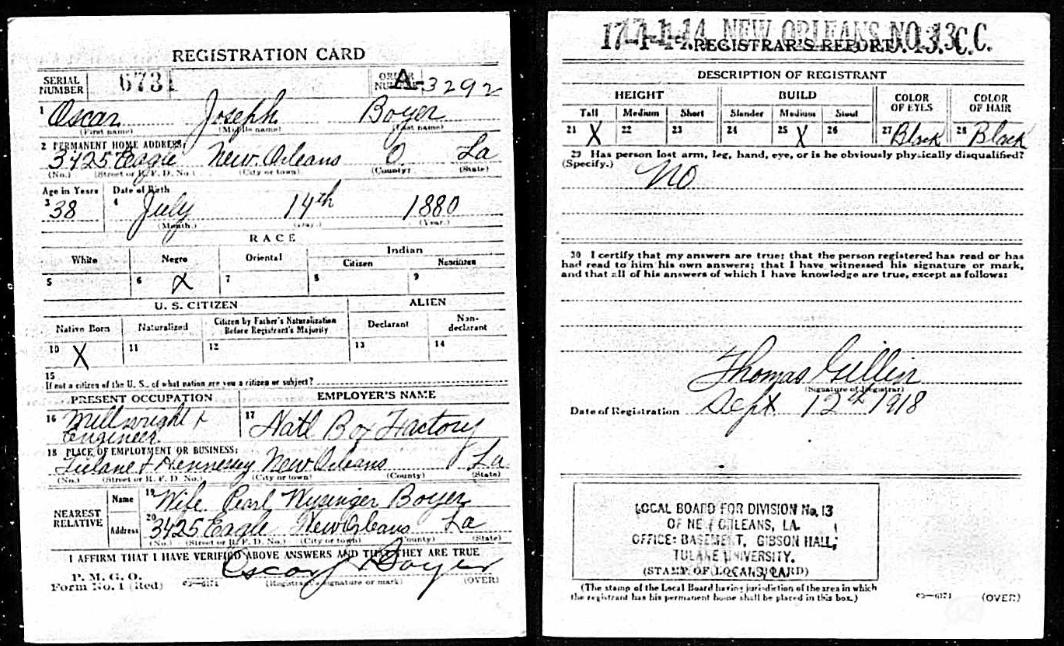 REGISTRATION CARD
SERIAL NUMBER 6731 ORDER NUMBER A-3292
1 Oscar Joseph Boyer
(First name) (Middle name) (Last name)
2 PERMANENT HOME ADDRESS:
3425 Eagle New Orleans O La
(No.) (Street or R. F. D. No.) (City or town) (County) (State)
Age in Years Date of Birth
3 38 4 July 14th 1880
(Month.) (Day.) (Year.)
RACE
White Negro Oriental Indian
Citizen Noncitizen
5 6 X 7 8 9
U. S. CITIZEN ALIEN
Native Born Naturalized Citizen by Father's Naturalization Before Registrant's Majority Declarant Non-declarant
10 X 11 12 13 14
15
If not a citizen of the U. S., of what nation are you a citizen or subject?
PRESENT OCCUPATION EMPLOYER'S NAME
16 Millwright & Engineer 17 Natl Box Factory
18 PLACE OF EMPLOYMENT OR BUSINESS:
Tulane & Hennessey New Orleans La
(No.) (Street or R. F. D. No.) (City or town) (County) (State)
NEAREST RELATIVE
Name 19 Wife Pearl Wysinger Boyer
Address 20 3425 Eagle New Orleans La
(No.) (Street or R. F. D. No.) (City or town) (County) (State)
I AFFIRM THAT I HAVE VERIFIED ABOVE ANSWERS AND THAT THEY ARE TRUE
Oscar J Boyer
P. M. G. O.
Form No. 1 (Red) 03—6171 (Registrant's signature or mark) (OVER)
NEW ORLEANS NO. 13 C.C.
REGISTRAR'S REPORT
DESCRIPTION OF REGISTRANT
HEIGHT BUILD COLOR OF EYES COLOR OF HAIR
Tall Medium Short Slender Medium Stout
21 X 22 23 24 25 X 26 27 Black 28 Black
29 Has person lost arm, leg, hand, eye, or is he obviously physically disqualified?
(Specify.) No
30 I certify that my answers are true; that the person registered has read or has
had read to him his own answers; that I have witnessed his signature or mark,
and that all of his answers of which I have knowledge are true, except as follows:
Thomas Gillin
(Signature of Registrar)
Date of Registration Sept 12th 1918
LOCAL BOARD FOR DIVISION No. 13
OF NEW ORLEANS, LA.
OFFICE: BASEMENT, GIBSON HALL,
TULANE UNIVERSITY.
(STAMP OF LOCAL BOARD)
(The stamp of the Local Board having jurisdiction of the area in which
the registrant has his permanent home shall be placed in this box.)
03—6171 (OVER)